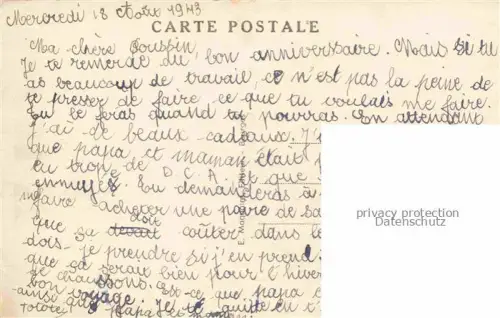 Mercredi 18 Août 1943
CARTE POSTALE
Ma chère Poussin
Je te remercie du bon anniversaire. Mais si tu
as beaucoup de travail, ce n'est pas la peine de
te presser de faire ce que tu voulais me faire.
Tu le feras quand tu pourras. En attendant
j'ai de beaux cadeaux. J'
que papa et maman était
eu trop de D.C.A. et que
ennuyés. Tu demanderas à
faire acheter une paire de sa
que ça doit coûter dans le
dois-je prendre si j'en prend
que ce serait bien pour l'hiver
de chaussons. Est-ce que papa
bon voyage. Je te quitte en t'
ainsi que papa et maman
Tototte
privacy protection
Datenschutz